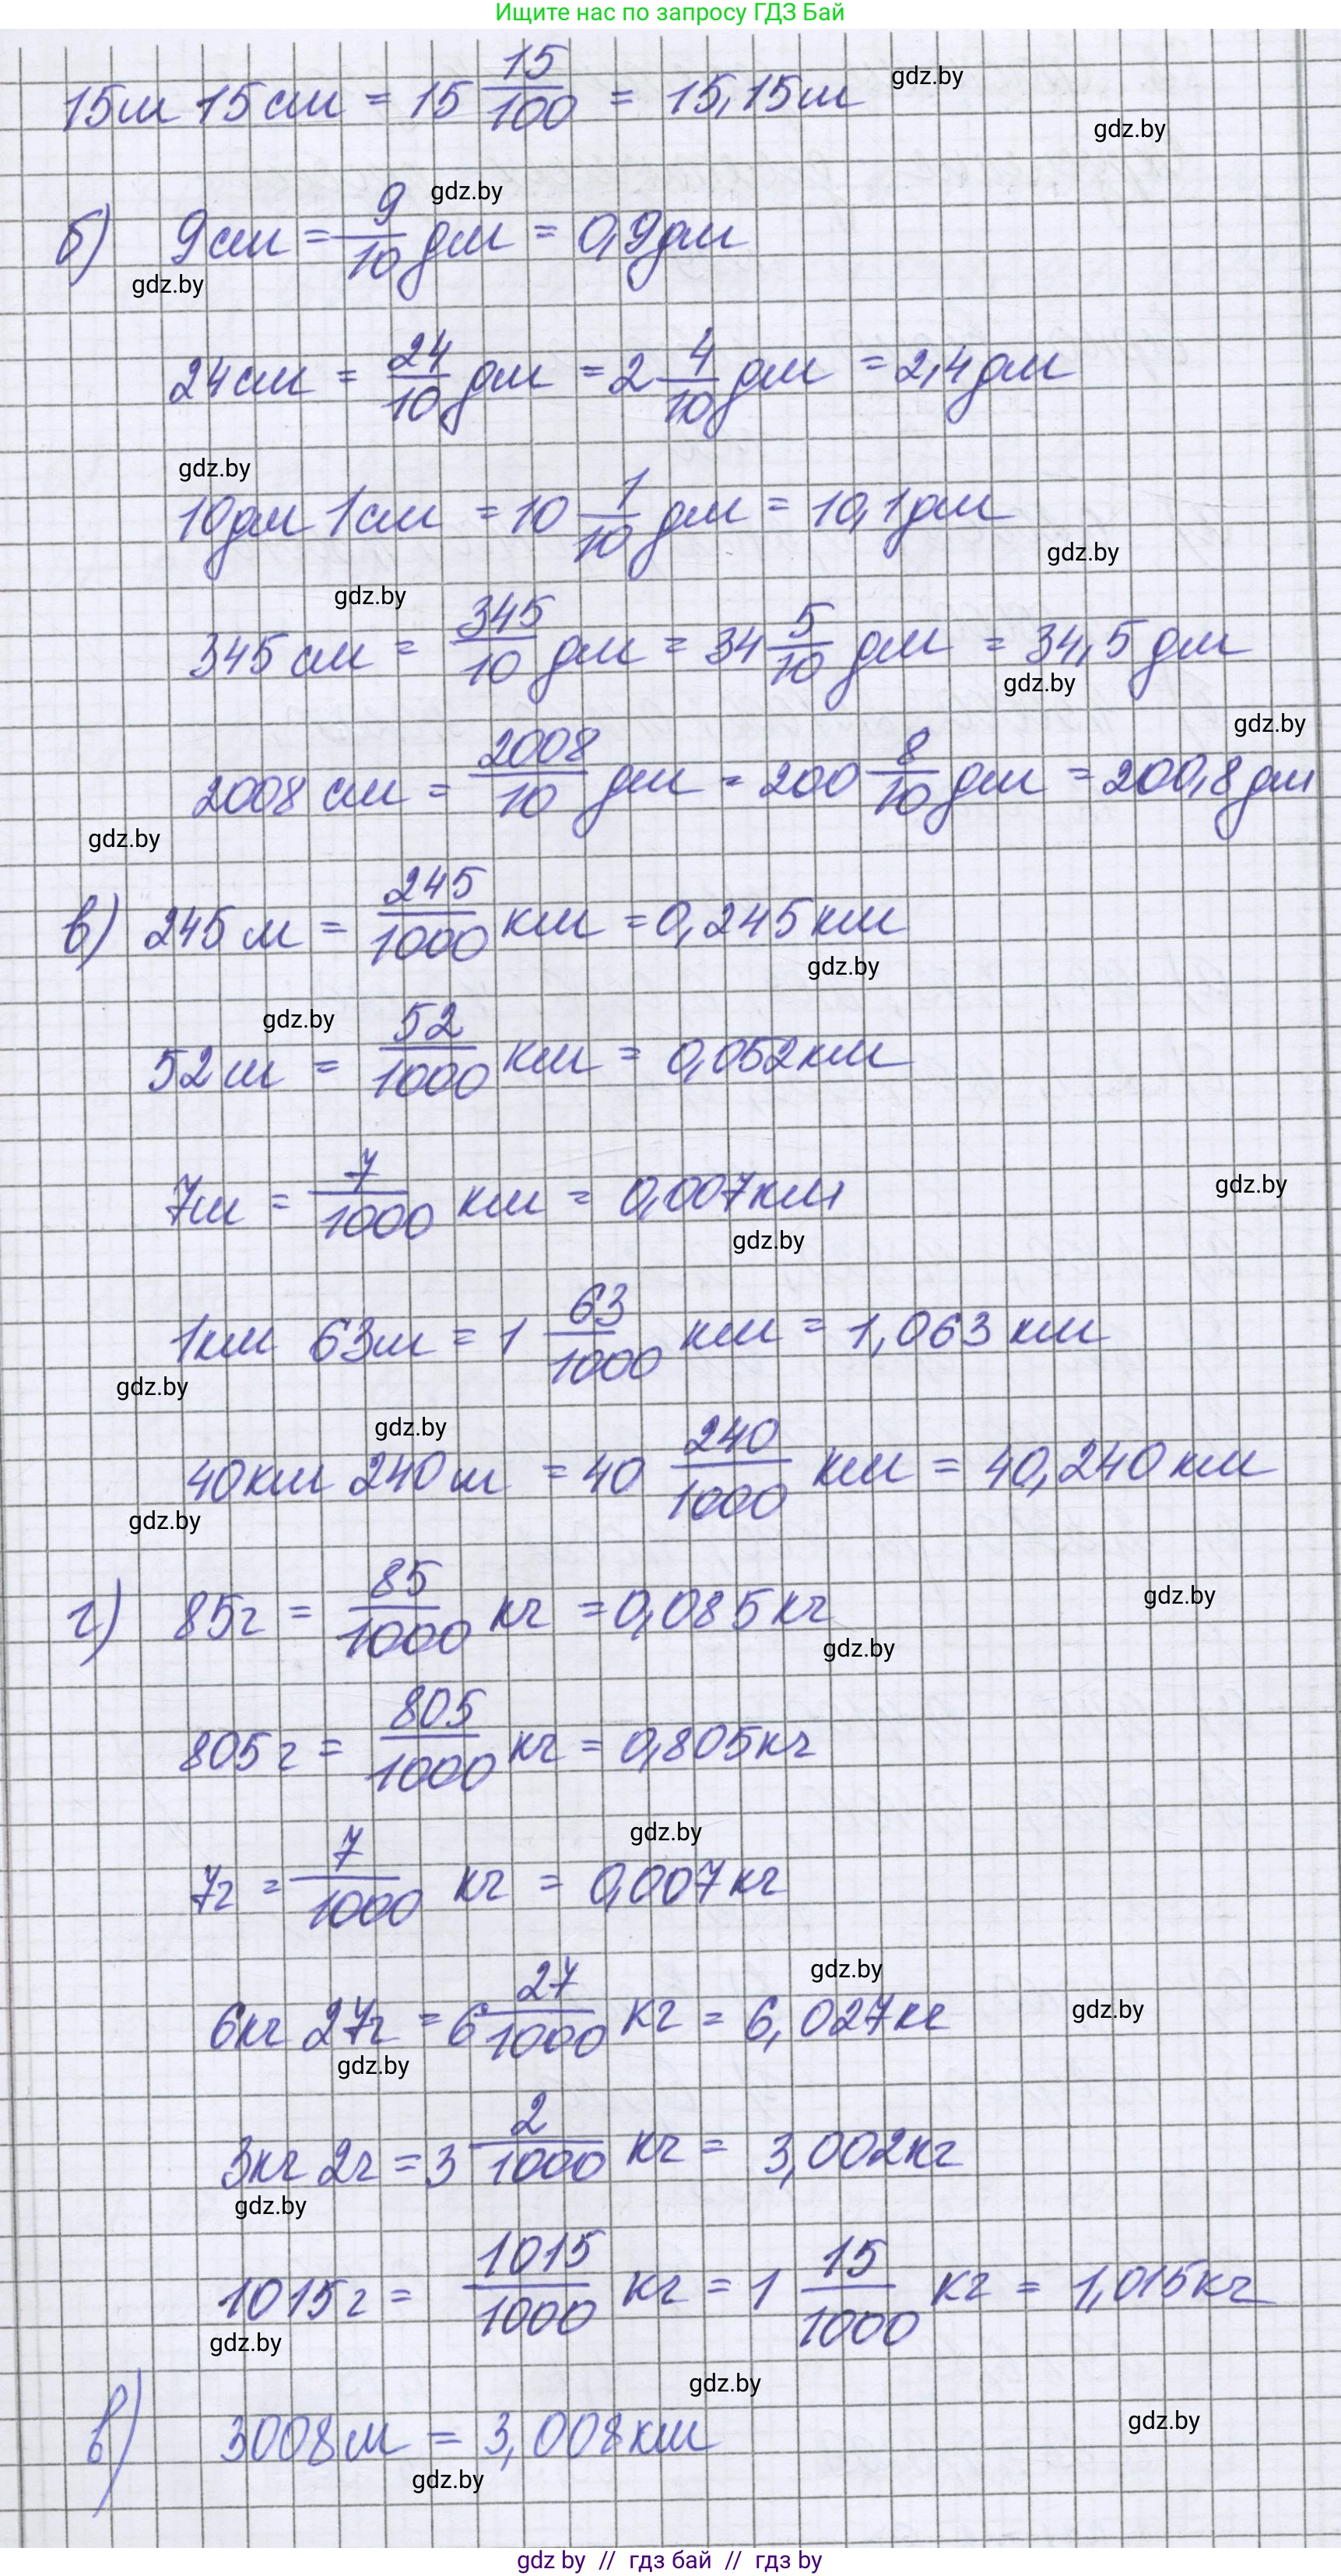 Ищите нас по запросу ГДЗ Бай
15м 15см = 15 15/100 = 15,15м
gdz.by
gdz.by
gdz.by
б) 9см = 9/10 дм = 0,9дм
gdz.by
24см = 24/10 дм = 2 4/10 дм = 2,4дм
gdz.by
10дм 1см = 10 1/10 дм = 10,1дм
gdz.by
gdz.by
345см = 345/10 дм = 34 5/10 дм = 34,5дм
gdz.by
gdz.by
2008 см = 2008/10 дм = 200 8/10 дм = 200,8дм
gdz.by
в) 245м = 245/1000 км = 0,245км
gdz.by
gdz.by
52м = 52/1000 км = 0,052км
7м = 7/1000 км = 0,007км
gdz.by
gdz.by
1км 63м = 1 63/1000 км = 1,063 км
gdz.by
gdz.by
40км 240м = 40 240/1000 км = 40,240км
gdz.by
г) 85г = 85/1000 кг = 0,085кг
gdz.by
gdz.by
805г = 805/1000 кг = 0,805кг
gdz.by
7г = 7/1000 кг = 0,007кг
gdz.by
6кг 27г = 6 27/1000 кг = 6,027кг
gdz.by
gdz.by
3кг 2г = 3 2/1000 кг = 3,002кг
gdz.by
1015г = 1015/1000 кг = 1 15/1000 кг = 1,015кг
gdz.by
gdz.by
в) 3008м = 3,008км
gdz.by
gdz.by
gdz by // гдз бай // гдз by